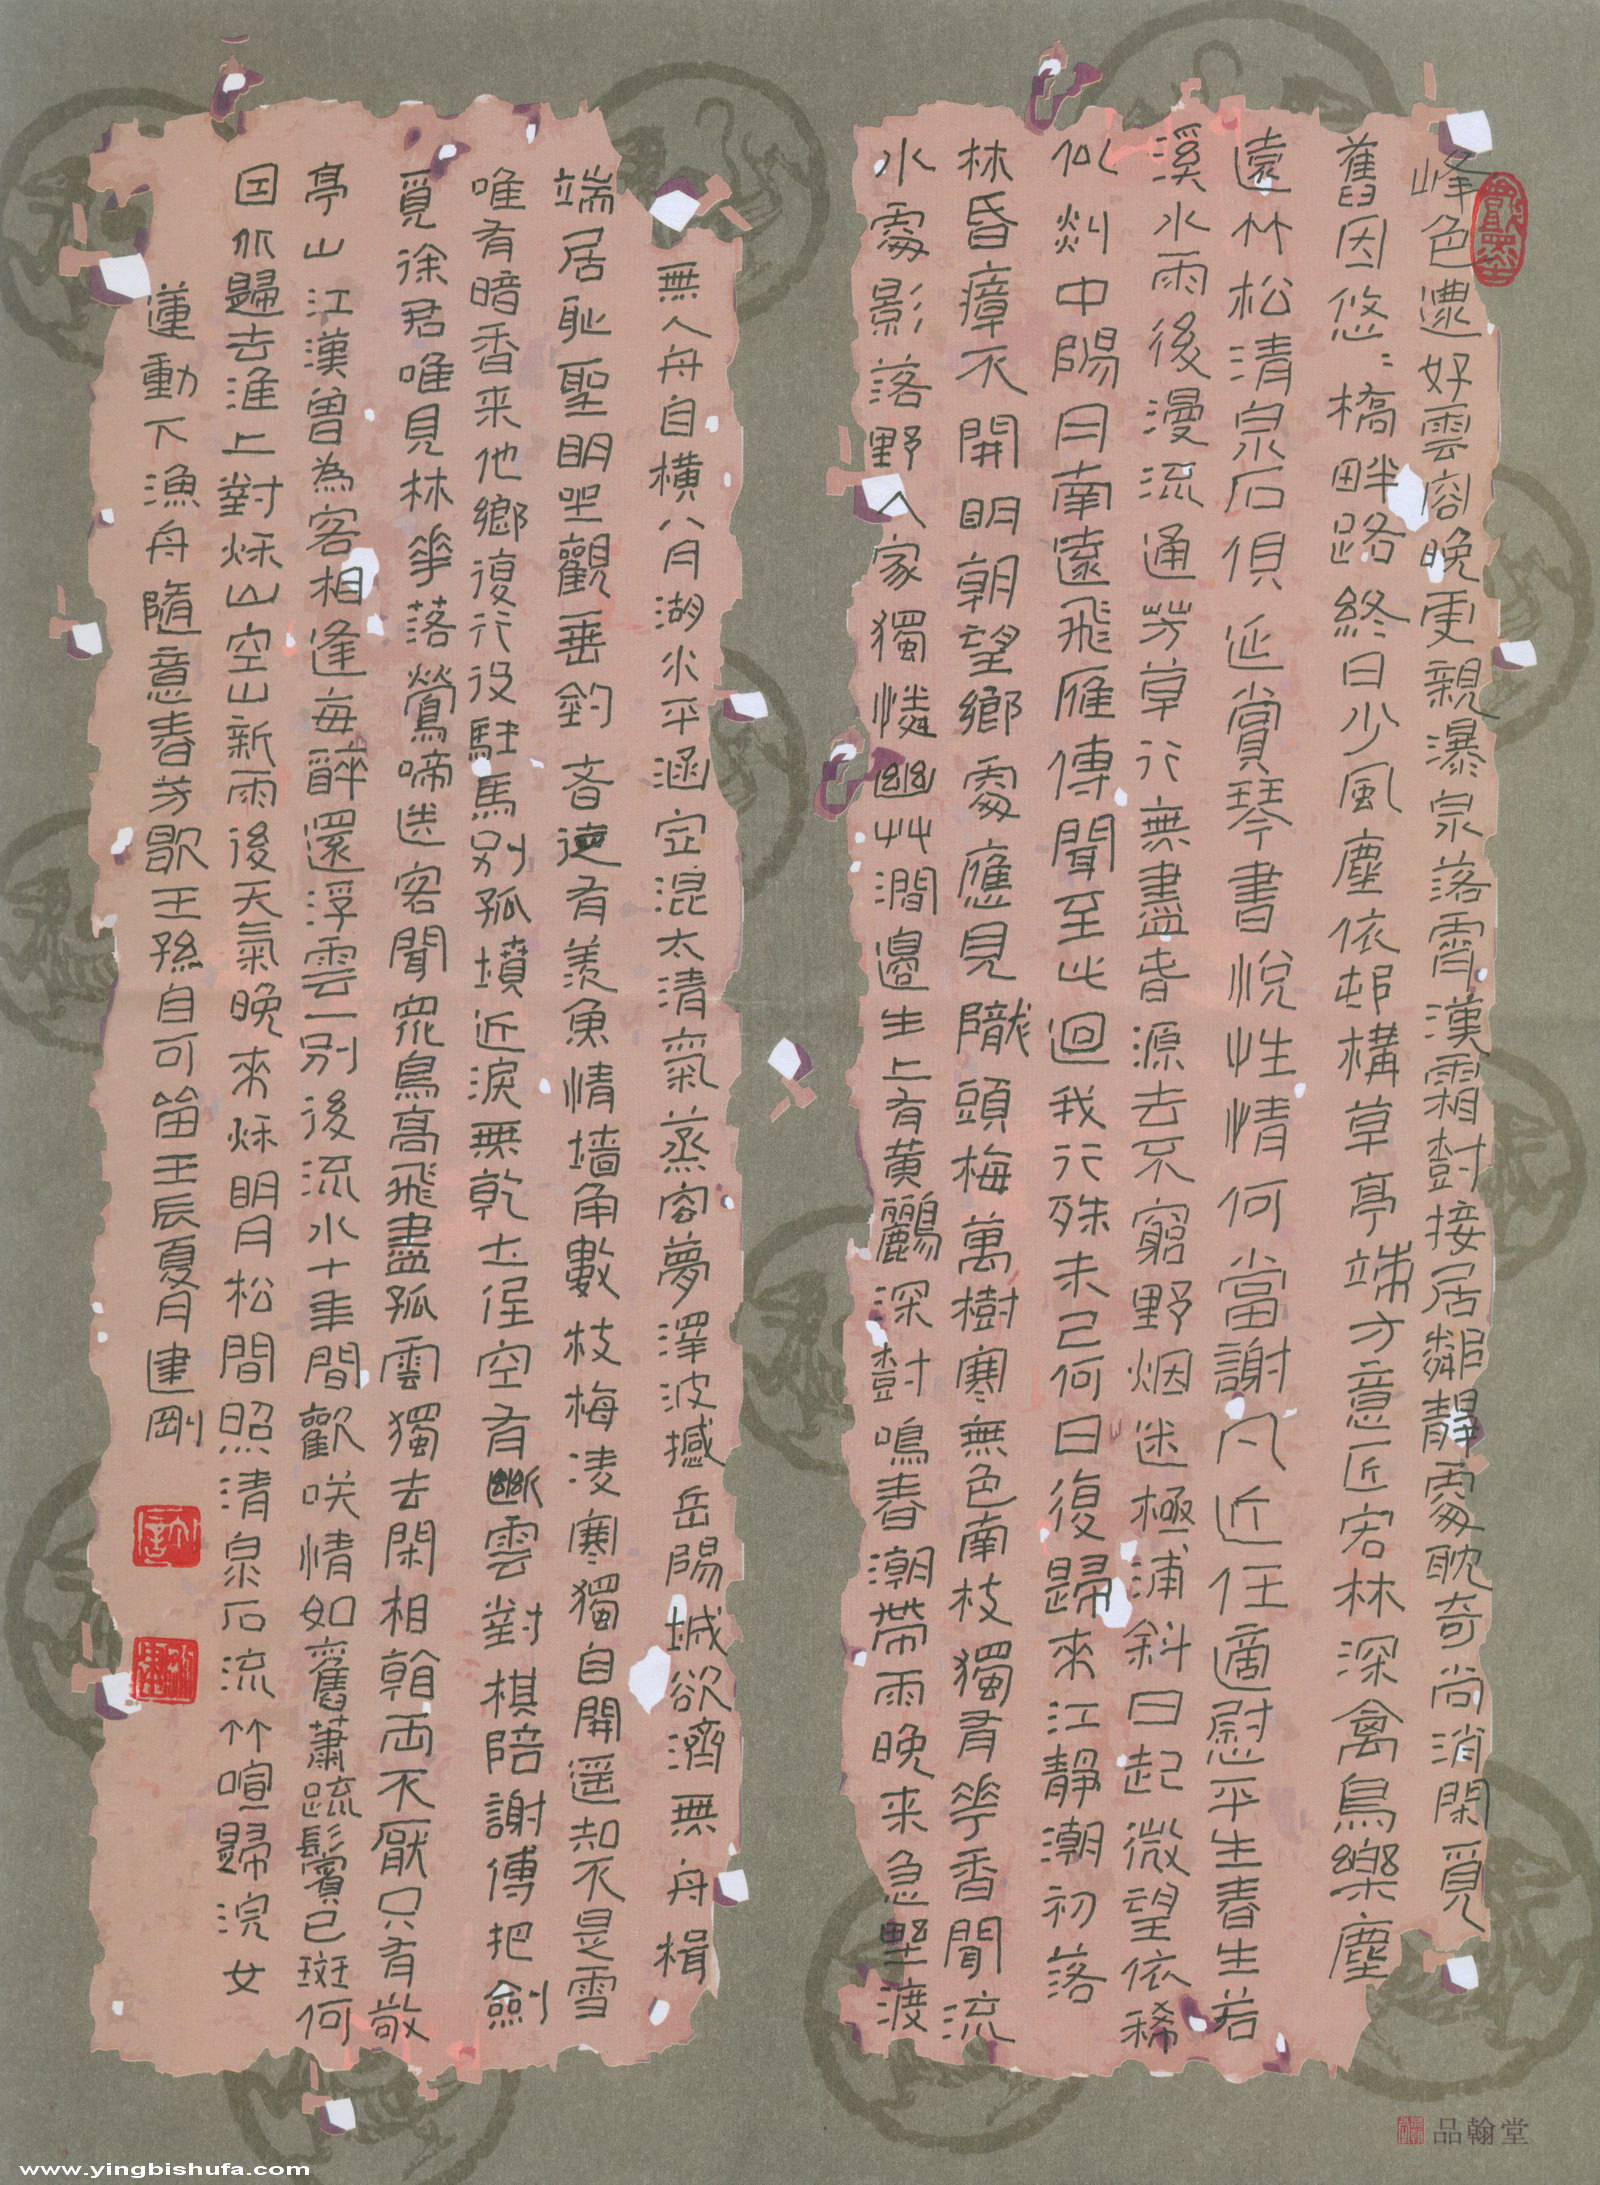 峰色遭好雲容晚更親瀑泉落霄漢霜樹接居鄰靜處耽奇尚消閑覓
舊因悠〻橋畔路終日少風塵依邨構草亭端方意匠宏林深禽鳥樂塵
遠竹松清泉石俱延賞琴書悅性情何當謝凡近任適慰平生春生若
溪水雨後漫流通芳草行無盡春源去不窮野烟迷極浦斜日起微望依稀
似剡中陽月南遠飛雁傳聞至此迴我行殊未已何日復歸來江靜潮初落
林昏瘴不開明朝望鄉處應見隴頭梅萬樹寒無色南枝獨有華香聞流
水處影落野人家獨憐幽艸澗邊生上有黃鸝深樹鳴春潮帶雨晚来急野渡
無人舟自橫八月湖水平涵空混太清氣蒸容夢澤波撼岳陽城欲濟無舟楫
端居恥聖明坐觀垂釣者徒有羨魚情墻角數枝梅凌寒獨自開遥知不是雪
唯有暗香来他鄉復行役駐馬別孤墳近淚無乾土低空有斷雲對棋陪謝傅把劍
覓徐君唯見林華落鶯啼送客聞眾鳥高飛盡孤雲獨去閑相看兩不厭只有敬
亭山江漢曾為客相逢每醉還浮雲一別後流水十年間歡笑情如舊蕭疏鬢已斑何
因不歸去淮上對秋山空山新雨後天氣晚來秋明月松間照清泉石流竹喧歸浣女
蓮動下漁舟隨意春芳歇王孫自可留壬辰夏月建剛
品翰堂
www.yingbishufa.com